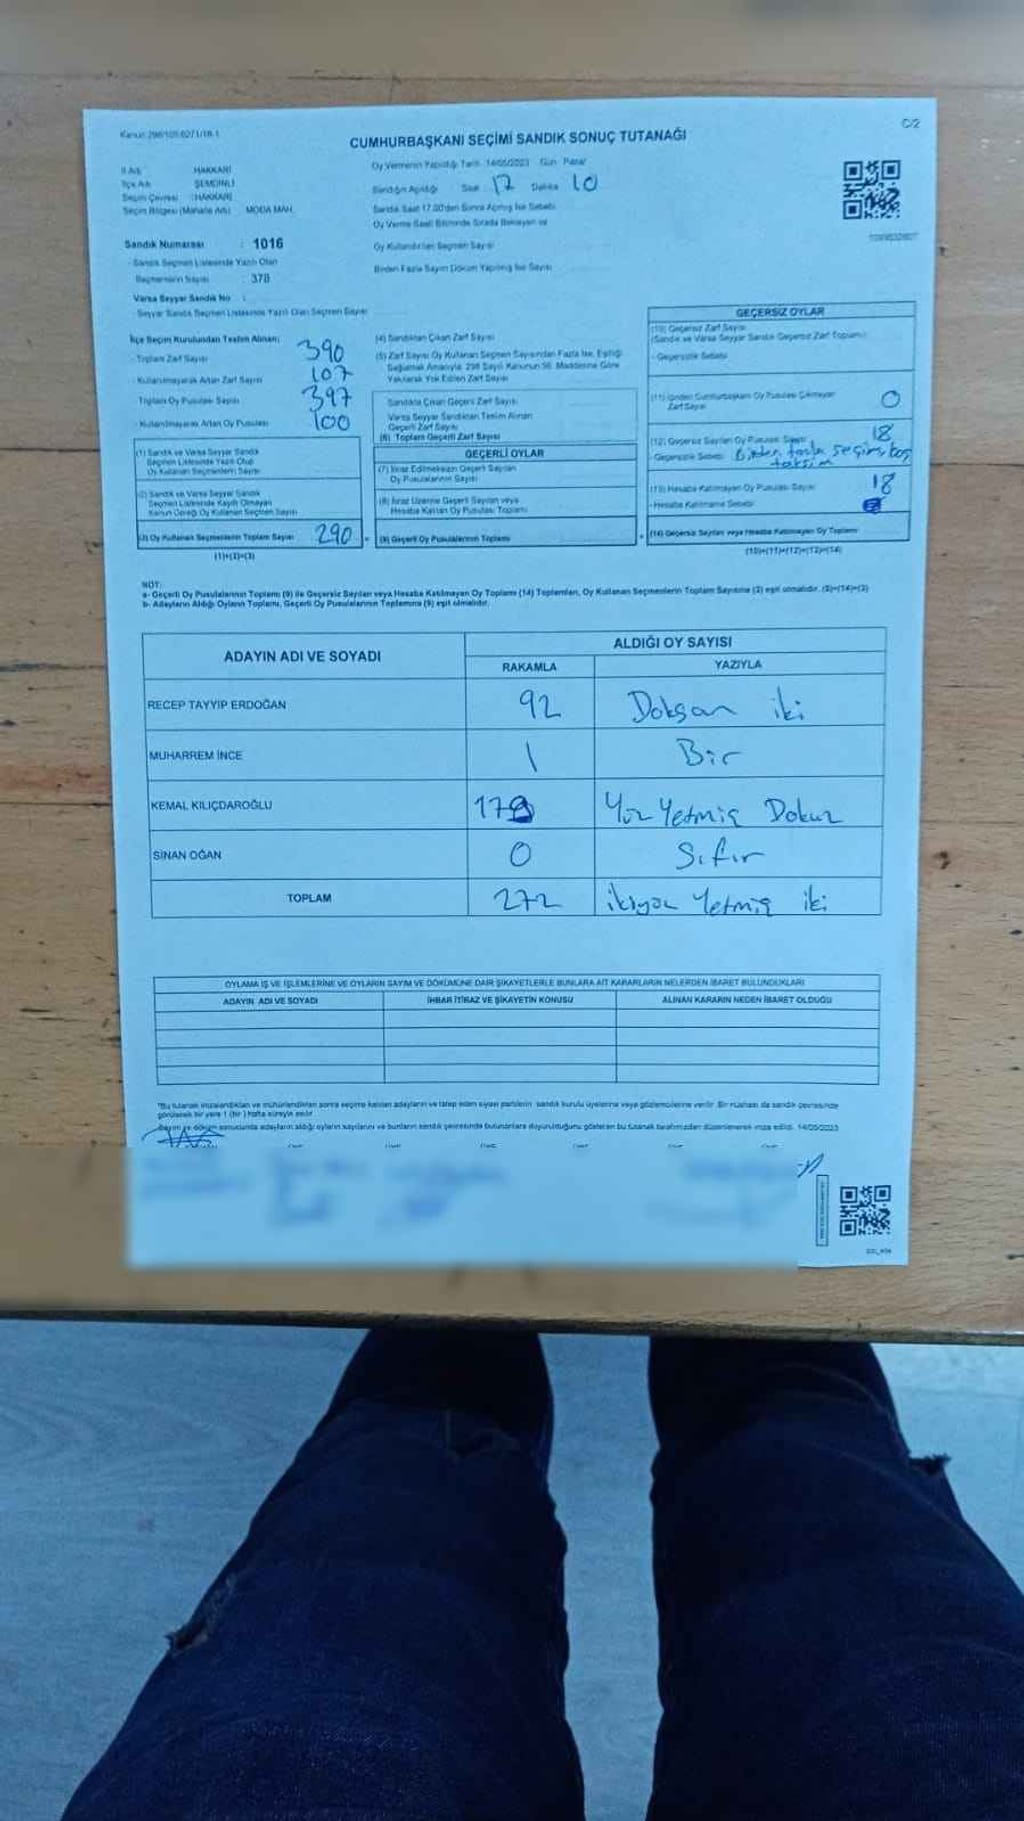 C/2
CUMHURBAŞKANI SEÇİMİ SANDIK SONUÇ TUTANAĞI
İl Adı : HAKKARİ
Oy Vermenin Yapıldığı Tarih 14/05/2023 Gün Pazar
İlçe Adı : ŞEMDİNLİ
Sandığın Açıldığı Saat 17 Dakika 10
Seçim Çevresi : HAKKARİ
Seçim Bölgesi (Mahalle Adı) : MODA MAH.
Sandık Saat 17.00'den Sonra Açılmış İse Sebebi
Oy Verme Saati Bitiminde Sırada Bekleyen ve
Oy Kullandırılan Seçmen Sayısı
Sandık Numarası : 1016
Sandık Seçmen Listesinde Yazılı Olan
Seçmenlerin Sayısı : 378
Birden Fazla Sayım Döküm Yapılmış İse Sayısı
Varsa Seyyar Sandık No :
Seyyar Sandık Seçmen Listesinde Yazılı Olan Seçmen Sayısı
İlçe Seçim Kurulundan Teslim Alınan;
Toplam Zarf Sayısı 390
Kullanılmayarak Artan Zarf Sayısı 107
Toplam Oy Pusulası Sayısı 397
Kullanılmayarak Artan Oy Pusulası 100
(1) Sandık ve Varsa Seyyar Sandık
Seçmen Listesinde Yazılı Olup
Oy Kullanan Seçmenlerin Sayısı
(2) Sandık ve Varsa Seyyar Sandık
Seçmen Listesinde Kayıtlı Olmayan
Kanun Gereği Oy Kullanan Seçmen Sayısı
(3) Oy Kullanan Seçmenlerin Toplam Sayısı 290
(1)+(2)=(3)
(4) Sandıktan Çıkan Zarf Sayısı
(5) Zarf Sayısı Oy Kullanan Seçmen Sayısından Fazla İse, Eşitliği
Sağlamak Amacıyla, 298 Sayılı Kanunun 98. Maddesine Göre
Yakılarak Yok Edilen Zarf Sayısı
Sandıkta Çıkan Geçerli Zarf Sayısı
Varsa Seyyar Sandıktan Teslim Alınan
Geçerli Zarf Sayısı
(6) Toplam Geçerli Zarf Sayısı
GEÇERLİ OYLAR
(7) İtiraz Edilmeksizin Geçerli Sayılan
Oy Pusulalarının Sayısı
(8) İtiraz Üzerine Geçerli Sayılan veya
Hesaba Katılan Oy Pusulası Toplamı
(9) Geçerli Oy Pusulalarının Toplamı
GEÇERSİZ OYLAR
(10) Geçersiz Zarf Sayısı
(Sandık ve Varsa Seyyar Sandık Geçersiz Zarf Toplamı)
- Geçersizlik Sebebi
(11) İçinden Cumhurbaşkanı Oy Pusulası Çıkmayan
Zarf Sayısı 0
(12) Geçersiz Sayılan Oy Pusulası Sayısı 18
- Geçersizlik Sebebi Birden fazla seçim, boş
(13) Hesaba Katılmayan Oy Pusulası Sayısı 18
- Hesaba Katılmama Sebebi
(14) Geçersiz Sayılan veya Hesaba Katılmayan Oy Toplamı
(10)+(11)+(12)+(13)=(14)
NOT:
a- Geçerli Oy Pusulalarının Toplamı (9) ile Geçersiz Sayılan veya Hesaba Katılmayan Oy Toplamı (14) Toplamları, Oy Kullanan Seçmenlerin Toplam Sayısına (3) eşit olmalıdır. (9)+(14)=(3)
b- Adayların Aldığı Oyların Toplamı, Geçerli Oy Pusulalarının Toplamına (9) eşit olmalıdır.
ADAYIN ADI VE SOYADI
ALDIĞI OY SAYISI
RAKAMLA YAZIYLA
RECEP TAYYİP ERDOĞAN 92 Doksan iki
MUHARREM İNCE 1 Bir
KEMAL KILIÇDAROĞLU 179 Yüz Yetmiş Dokuz
SİNAN OĞAN 0 Sıfır
TOPLAM 272 ikiyüz Yetmiş iki
OYLAMA İŞ VE İŞLEMLERİNE VE OYLARIN SAYIM VE DÖKÜMÜNE DAİR ŞİKAYETLERLE BUNLARA AİT KARARLARIN NELERDEN İBARET BULUNDUKLARI
ADAYIN ADI VE SOYADI İHBAR İTİRAZ VE ŞİKAYETİN KONUSU ALINAN KARARIN NEDEN İBARET OLDUĞU
*Bu tutanak imzalandıktan ve mühürlendikten sonra seçime katılan adayların ve talep eden siyasi partilerin sandık kurulu üyelerine veya gözlemcilerine verilir. Bir nüshası da sandık çevresinde
görülecek bir yere 1 (bir) hafta süreyle asılır.
Sayım ve döküm sonucunda adayların aldığı oyların sayılarını ve bunların sandık çevresinde bulunanlara duyurulduğunu gösteren bu tutanak tarafımızdan düzenlenerek imza edildi. 14/05/2023